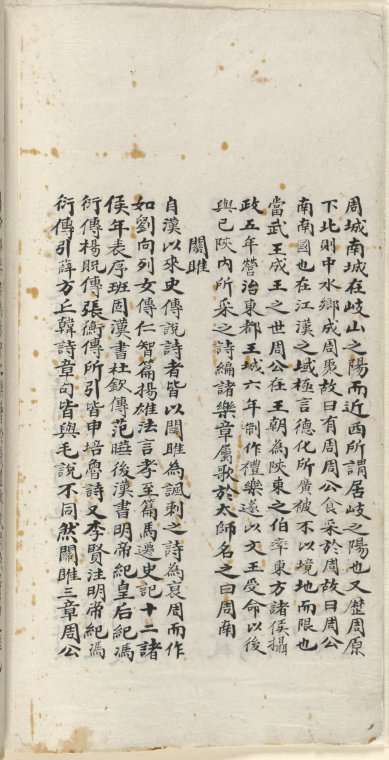 周城南城在岐山之陽而近西所謂居岐之陽也又歷周原
下此則中水鄉成周東故曰有周周公食采於周故曰周公
南南國也在江漢之域極言德化所廣被不以境地而限也
當武王成王之世周公在王朝為陝東之伯率東方諸侯攝
政五年營治東都王城六年制作禮樂遂以文王受命以後
與已陝內所采之詩編諸樂章屬歌於太師名之曰周南
關雎
自漢以來史傳說詩者皆以關雎為諷刺之詩為哀周而作
如劉向列女傳仁智篇揚雄法言孝至篇馬遷史記十二諸
侯年表序班固漢書杜欽傳范曄後漢書明帝紀皇后紀馮
衍傳楊賜傳張衡傳所引皆申培魯詩又李賢注明帝紀馮
衍傳引薛方丘韓詩章句皆與毛說不同然關雎三章周公